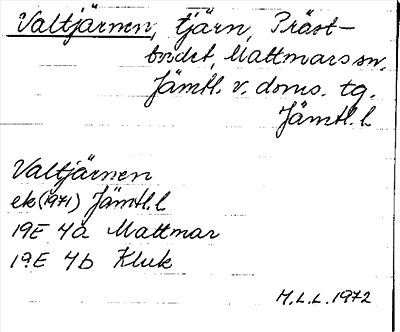 Valtjärnen, tjärn, Präst-
bodet, Mattmars sn,
Jämtl. v. doms. tg.
Jämtl. l.
Valtjärnen
ek (1971) Jämtl. l
19E 4a Mattmar
19E 4b Kluk
M.L.L. 1972